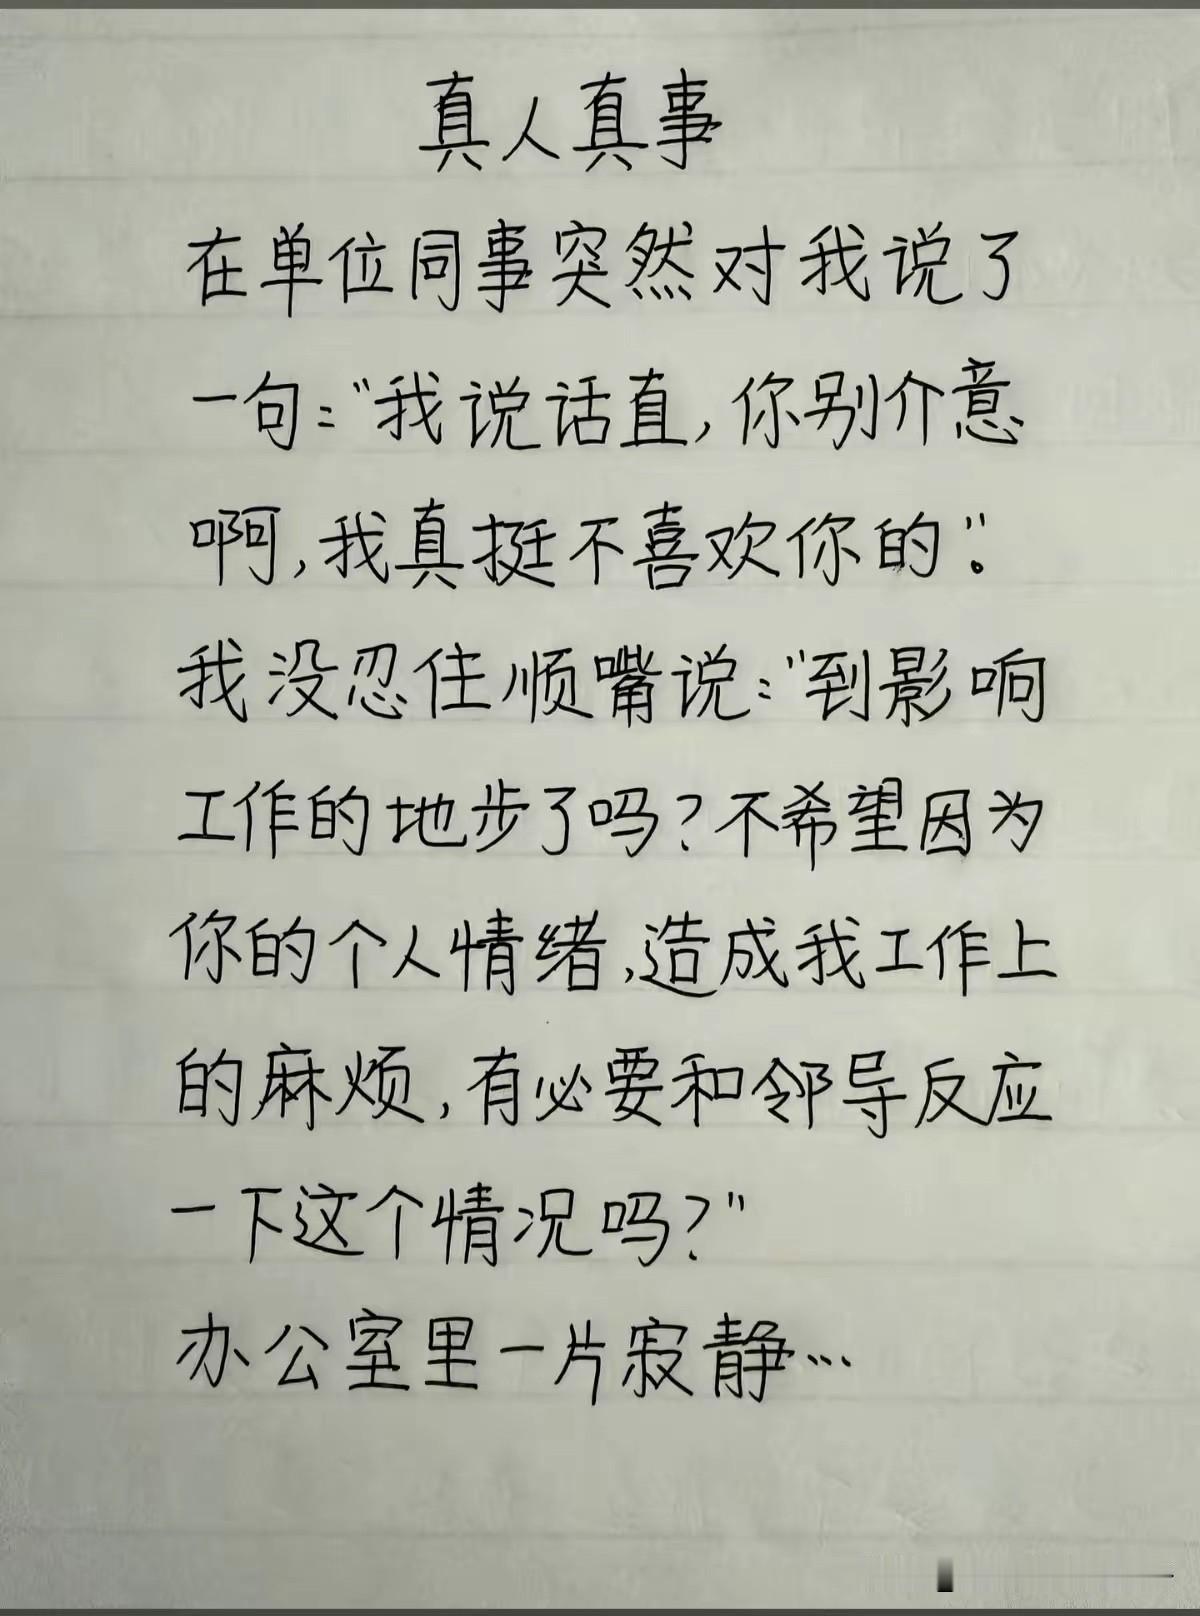 真人真事
在单位同事突然对我说了
一句:"我说话直,你别介意
啊,我真挺不喜欢你的"。
我没忍住顺嘴说:"到影响
工作的地步了吗?不希望因为
你的个人情绪,造成我工作上
的麻烦,有必要和邻导反应
一下这个情况吗?"
办公室里一片寂静…